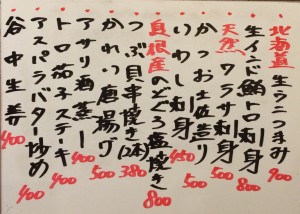 北海道生うにつまみ 900
生インド鮪トロ刺身 800
天然ワラサ刺身 500
かつお土佐造り 500
いわし刺身 450
島根産のどぐろ塩焼き 800
つぶ貝串焼き(2本) 380
かれい唐揚げ 500
アサリ酒蒸し 400
トロ茄子ステーキ 400
アスパラバター炒め 400
谷中生姜 400